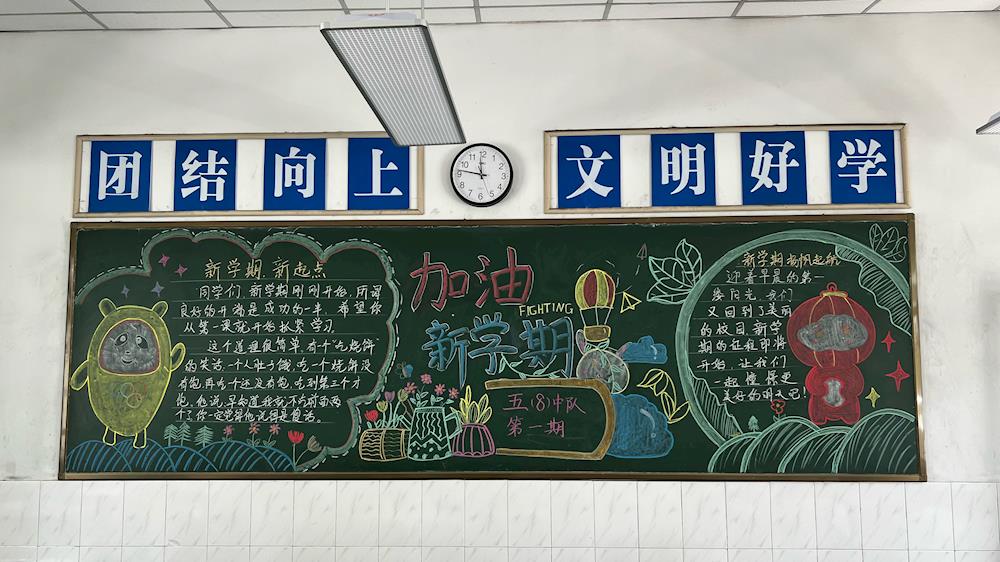 团结向上
文明好学
新学期 新起点
同学们，新学期刚刚开始，所谓
良好的开端是成功的一半，希望你
从第一课就开始抓紧学习
这个道理很简单，有个吃烧饼
的笑话，一个人肚子饿，吃一个烧饼没
有饱，再吃个还没有饱，吃到第三个才
饱，他说，早知道我就不吃前面两
个了，你一定觉得他说的是傻话。
加油
FIGHTING
新学期
五(8)中队
第一期
新学期 扬帆起航
迎着早晨的第一
缕阳光，我们
又回到了美丽
的校园，新学
期的征程即将
开始，让我们
一起憧憬更
美好的明天吧！
12
1
2
3
4
5
6
7
8
9
10
11